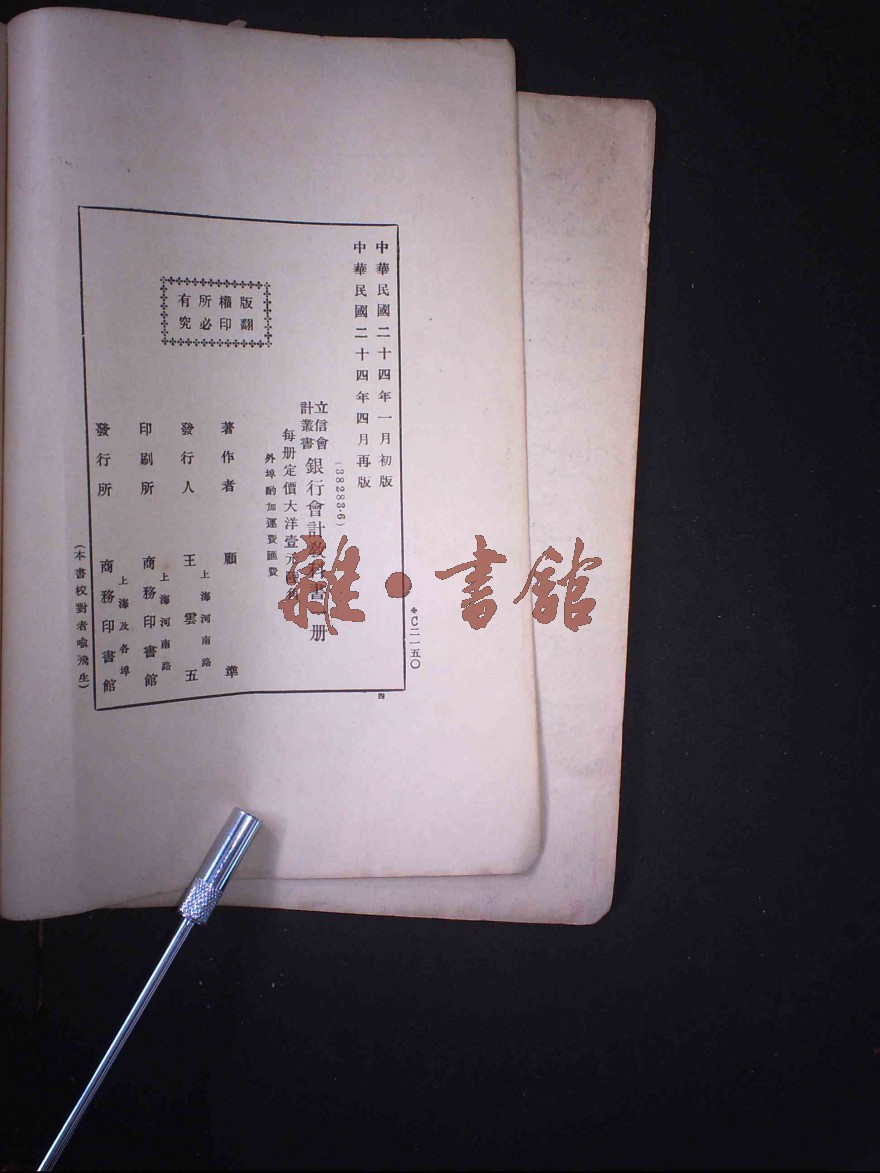 ❖C二一五〇
中華民國二十四年一月初版
中華民國二十四年四月再版
(38283·6)
立信會
計叢書
銀行會計教科書 册
每册定價大洋壹元
外埠酌加運費匯費
著作者 顧準
上海河南路
發行人 王雲五
上海河南路
印刷所 商務印書館
上海及各埠
發行所 商務印書館
版權所有
翻印必究
(本書校對者喻飛生)
四
雜·書館